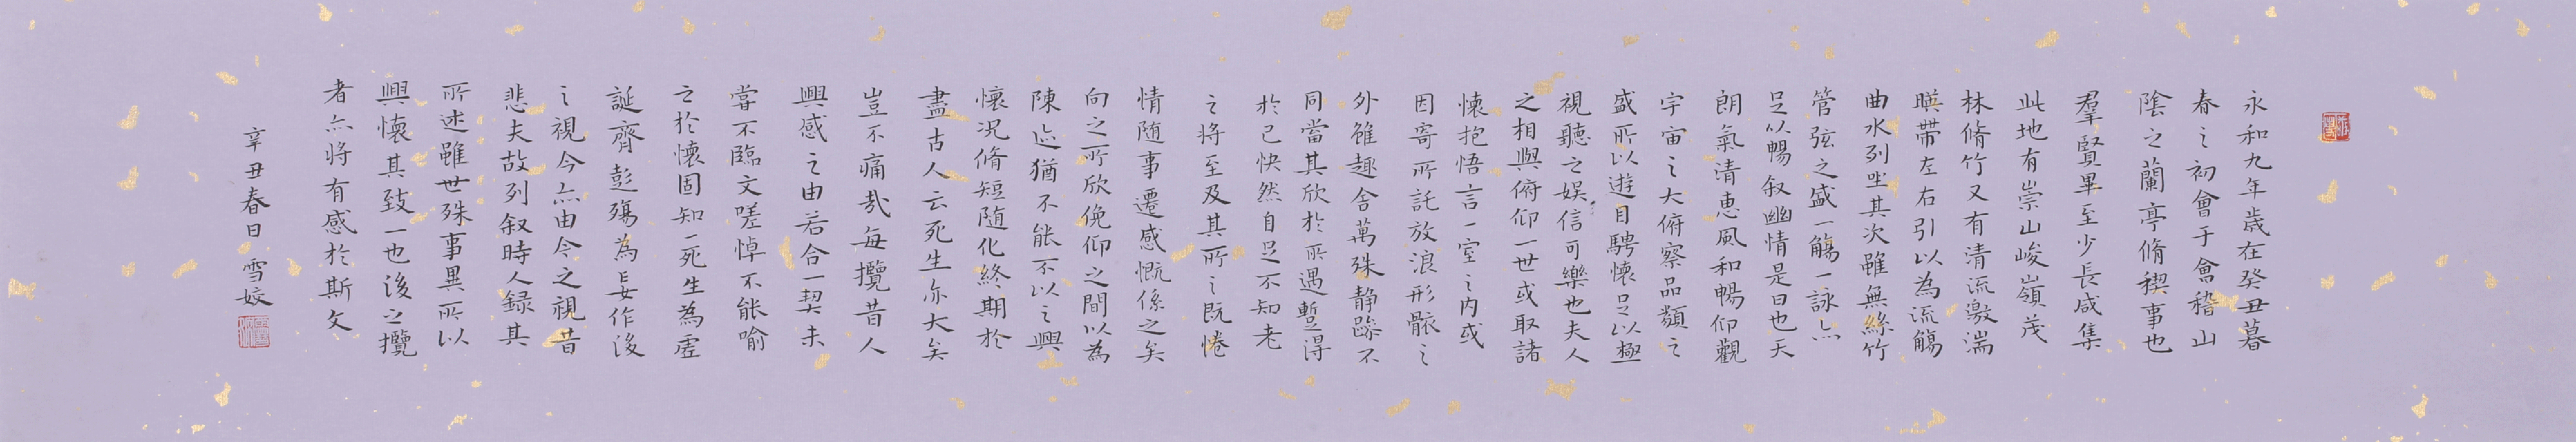 永和九年歲在癸丑暮
春之初會于會稽山
陰之蘭亭脩稧事也
羣賢畢至少長咸集
此地有崇山峻嶺茂
林脩竹又有清流激湍
暎帶左右引以為流觴
曲水列坐其次雖無絲竹
管弦之盛一觴一詠亦
足以暢叙幽情是日也天
朗氣清惠風和暢仰觀
宇宙之大俯察品類之
盛所以遊目騁懷足以極
視聽之娱信可樂也夫人
之相與俯仰一世或取諸
懷抱悟言一室之內或
因寄所託放浪形骸之
外雖趣舍萬殊静躁不
同當其欣於所遇蹔得
於己快然自足不知老
之將至及其所之既惓
情随事遷感慨係之矣
向之所欣俛仰之間以為
陳迹猶不能不以之興
懷況脩短随化終期於
盡古人云死生亦大矣
豈不痛哉每攬昔人
興感之由若合一契未
嘗不臨文嗟悼不能喻
之於懷固知一死生為虛
誕齊彭殤為妄作後
之視今亦由今之視昔
悲夫故列叙時人録其
所述雖世殊事異所以
興懷其致一也後之攬
者亦將有感於斯文
辛丑春日 雪姣